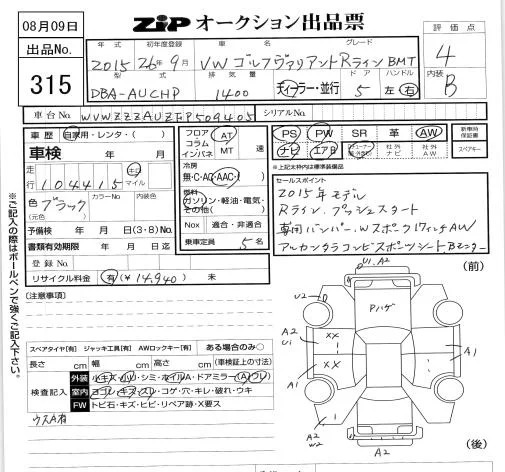 08月09日
ZiP オークション出品票
出品No.
315
年式 初年度登録 車名 グレード
2015 26年9月 VW ゴルフヴァリアントRライン BMT
型式 排気量 ドア ハンドル
DBA-AUCHP 1400 ディーラー・並行 5 左 右
評価点
4
内装
B
車台No. WVWZZZAUZFP509405
シリアルNo.
車歴 自家用・レンタ・( )
車検 年 月
走行 104415 キロ マイル
色 ブラック カラーNo 内装色
(元色)
予備検 年 月 日(3・8)No
書類有効期限 年 月 日迄
登録No.
リサイクル料金 有(¥14,940) 未
フロア
コラム
インパネ
AT
MT 速
冷房
無・C・AC・AAC
燃料
ガソリン・軽油・電気・
その他( )
Nox 適合・非適合
乗車定員 5名
PS PW SR 革 AW
ナビ エアB 社外ナビ 社外AW
新車時保証書
スペアキー
※上記太枠内は標準装備品
セールスポイント
2015年モデル
Rライン プッシュスタート
専用バンパー.Wスポーク17インチAW
アルカンタラコンビスポーツシート.Bモニター
※ご記入の際はボールペンで強くご記入下さい。
[注意事項]
スペアタイヤ[有] ジャッキ工具[有] AWロックキー[有] ある場合のみ○
長さ cm 幅 cm 高さ cm (車検証上の寸法)
検査記入
外装 小キズ・小凹・シミ・ホイルA・ドアミラー(A)ワレ
室内 ヨゴレ・キズ・スレ・コゲ・穴・キレ・破れ・ウキ
FW トビ石・キズ・ヒビ・リペア跡・X要ス
ウスA有
(前)
U1.A2
U2
Pハゲ
A2
U1
XX
XX
A1
A1
A2
W2
A2
(後)